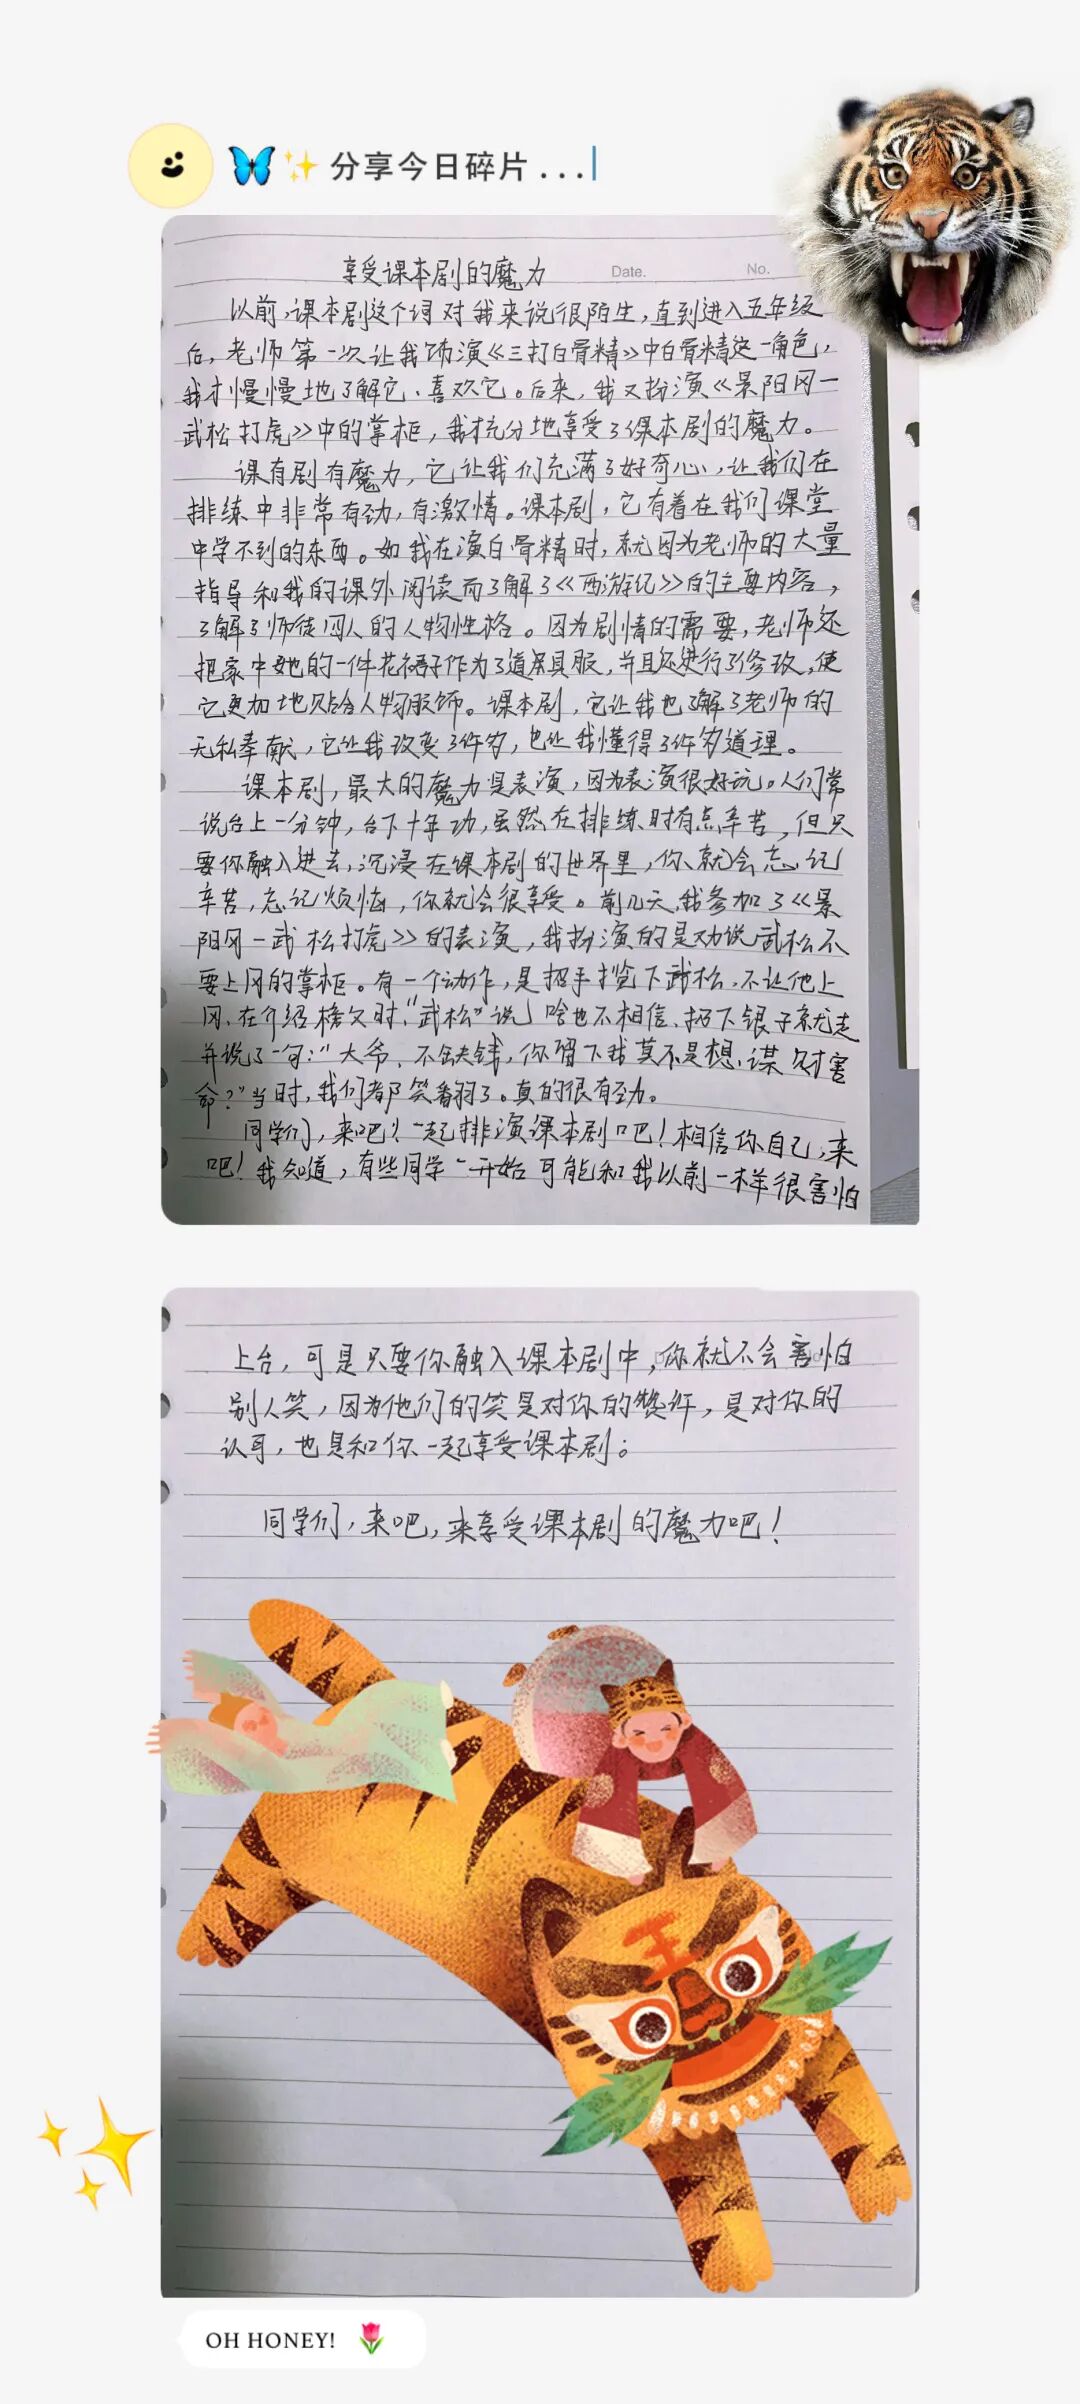 分享今日碎片...
享受课本剧的魔力
Date.
No.
以前,课本剧这个词对我来说很陌生,直到进入五年级
后,老师第一次让我饰演《三打白骨精》中白骨精这一角色,
我才慢慢地了解它、喜欢它。后来,我又扮演《景阳冈一
武松打虎》中的掌柜,我充分地享受了课本剧的魔力。
课有剧有魔力,它让我们充满了好奇心,让我们在
排练中非常有劲,有激情。课本剧,它有着在我们课堂
中学不到的东西。如我在演白骨精时,就因为老师的大量
指导和我的课外阅读而了解了《西游记》的主要内容,
了解了师徒四人的人物性格。因为剧情的需要,老师还
把家中她的一件花裙子作为了道具服,并且还进行了修改,使
它更加地贴合人物服饰。课本剧,它让我也了解了老师的
无私奉献,它让我改变了许多,也让我懂得了许多道理。
课本剧,最大的魔力是表演,因为表演很好玩。人们常
说台上一分钟,台下十年功,虽然在排练时有点辛苦,但只
要你融入进去,沉浸在课本剧的世界里,你就会忘记
辛苦,忘记烦恼,你就会很享受。前几天,我参加了《景
阳冈一武松打虎》的表演,我扮演的是劝说武松不
要上冈的掌柜。有一个动作,是招手拦下武松,不让他上
冈、在介绍榜文时,“武松”说啥也不相信、扔下银子就走
并说了一句:“大爷、不缺钱,你留下我莫不是想谋财害
命?”当时,我们都笑翻了。真的很有劲。
同学们,来吧!一起排演课本剧吧!相信你自己,来
吧!我知道,有些同学一开始可能和我以前一样很害怕
上台,可是只要你融入课本剧中,你就不会害怕
别人笑,因为他们的笑是对你的赞许,是对你的
认可,也是和你一起享受课本剧。
同学们,来吧,来享受课本剧的魔力吧!
王
OH HONEY!